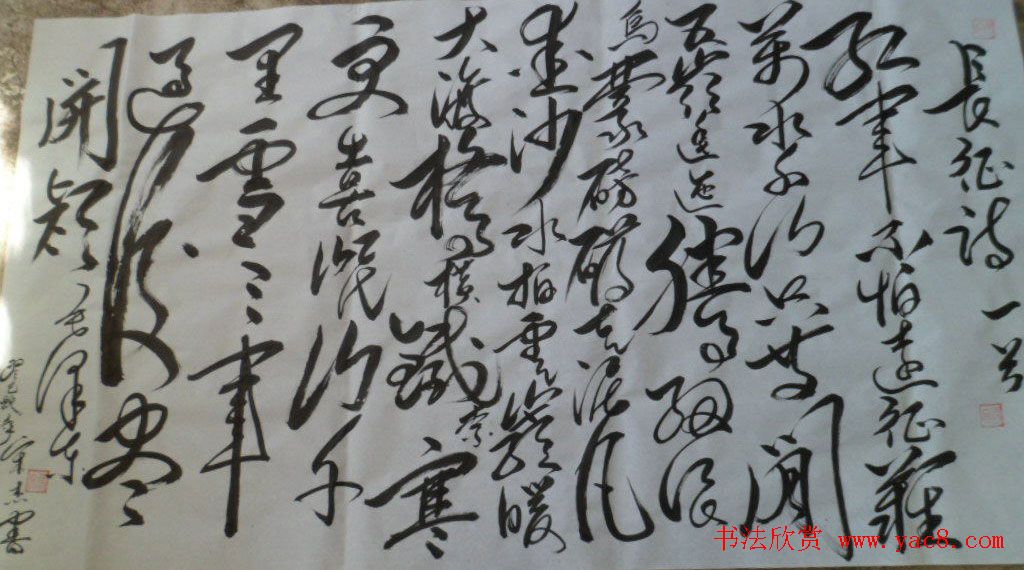 長征詩一首
紅軍不怕遠征難
萬水千山只等閑
五嶺逶迤騰細浪
烏蒙磅礴走泥丸
金沙水拍雲崖暖
大渡橋橫鐵索寒
更喜岷山千
里雪三軍
過後盡
開顏 毛澤東
書
书法欣赏 www.yac8.com